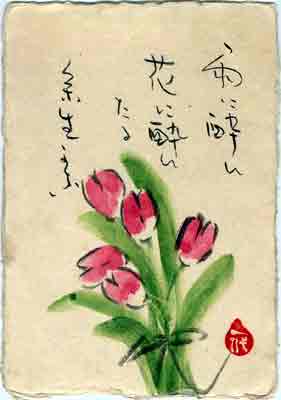 雨に酔い
花に酔い
たる
余生かな